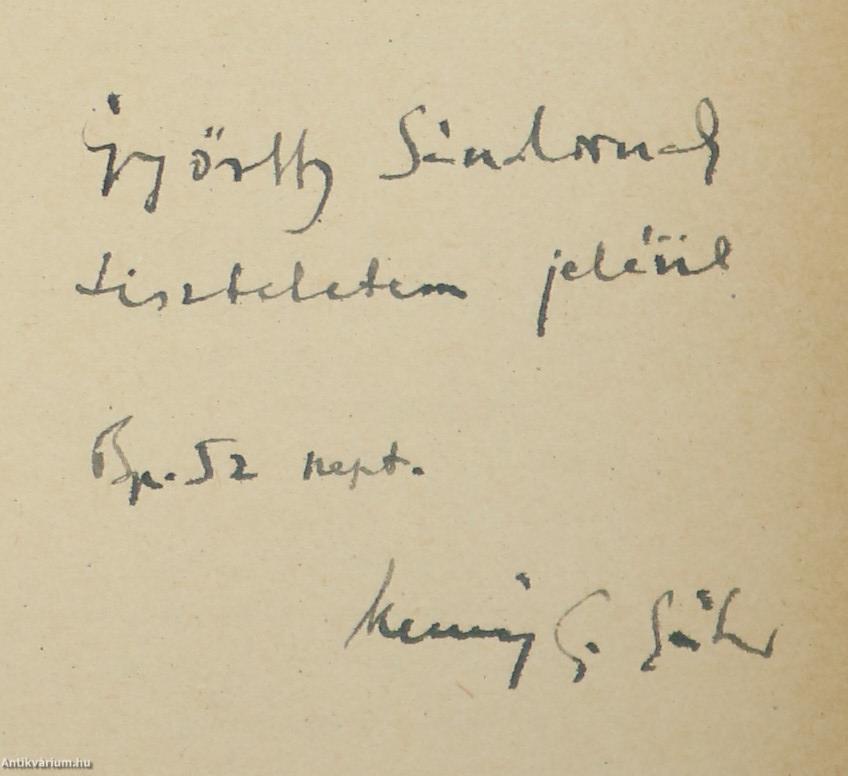 Győrffy Sándornak
tiszteletem jeléül
Bp. 52 szept.
Kemény G. Gábor
Antikvárium.hu